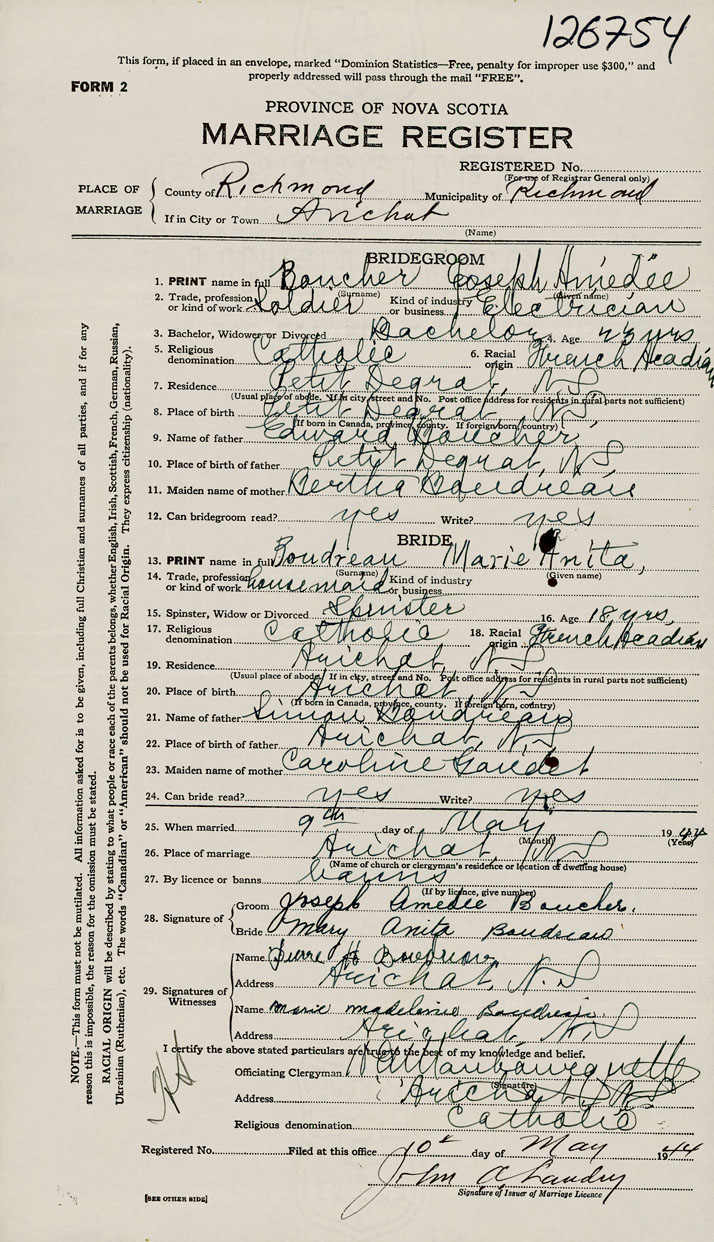 126754
This form, if placed in an envelope, marked "Dominion Statistics—Free, penalty for improper use $300," and
properly addressed will pass through the mail "FREE".
FORM 2
PROVINCE OF NOVA SCOTIA
MARRIAGE REGISTER
REGISTERED No.
(For use of Registrar General only)
PLACE OF MARRIAGE
County of Richmond Municipality of Richmond
If in City or Town Arichat
(Name)
BRIDEGROOM
1. PRINT name in full Boucher Joseph Amédée
(Surname) (Given name)
2. Trade, profession or kind of work Soldier Kind of industry or business Electrician
3. Bachelor, Widower or Divorced Bachelor 4. Age 23 yrs
5. Religious denomination Catholic 6. Racial origin French Acadian
7. Residence Petit Degrat, N S
(Usual place of abode. If in city, street and No. Post office address for residents in rural parts not sufficient)
8. Place of birth Petit Degrat, N S
(If born in Canada, province, county. If foreign born, country)
9. Name of father Edward Boucher
10. Place of birth of father Petit Degrat, N S
11. Maiden name of mother Bertha Boudreau
12. Can bridegroom read? yes Write? yes
BRIDE
13. PRINT name in full Boudreau Marie Anita,
(Surname) (Given name)
14. Trade, profession or kind of work housemaid Kind of industry or business
15. Spinster, Widow or Divorced Spinster 16. Age 18 yrs,
17. Religious denomination Catholic 18. Racial origin French Acadian
19. Residence Arichat, N S
(Usual place of abode. If in city, street and No. Post office address for residents in rural parts not sufficient)
20. Place of birth Arichat, N S
(If born in Canada, province, county. If foreign born, country)
21. Name of father Simon Boudreau
22. Place of birth of father Arichat, N S
23. Maiden name of mother Caroline Gaudet
24. Can bride read? yes Write? yes
25. When married 9th day of May 1944
(Month) (Year)
26. Place of marriage Arichat, N S
(Name of church or clergyman's residence or location of dwelling house)
27. By licence or banns banns
(If by licence, give number)
28. Signature of
Groom Joseph Amedée Boucher.
Bride Mary Anita Boudreau
29. Signatures of Witnesses
Name Pierre H Boudreau
Address Arichat, N. S
Name Marie Madeleine Boudreau
Address Arichat, N S
I certify the above stated particulars are true to the best of my knowledge and belief.
Officiating Clergyman
(Signature)
Address Arichat, N S
Religious denomination Catholic
Registered No. Filed at this office 10th day of May 1944
John A Landry
Signature of Issuer of Marriage Licence
[SEE OTHER SIDE]
NOTE.—This form must not be mutilated. All information asked for is to be given, including full Christian and surnames of all parties, and if for any
reason this is impossible, the reason for the omission must be stated.
RACIAL ORIGIN will be described by stating to what people or race each of the parents belongs, whether English, Irish, Scottish, French, German, Russian,
Ukrainian (Ruthenian), etc. The words "Canadian" or "American" should not be used for Racial Origin. They express citizenship (nationality).